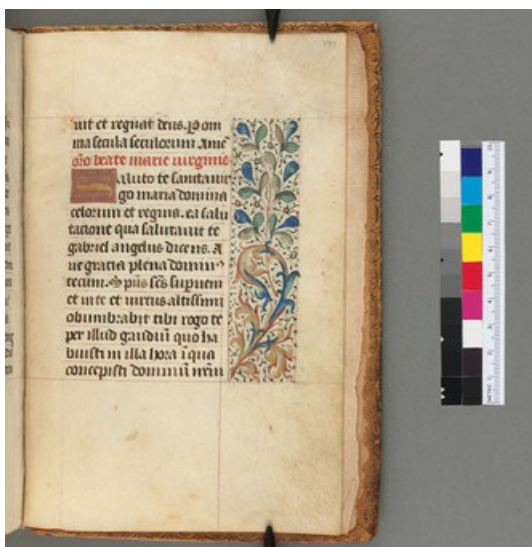 uit et regnat deus. P om
nia secula seculorum. Ame
orō beate marie uirginis
aluto te sancta uir
go maria domina
celorum et regina. ea salu
tacione qua salutauit te
gabriel angelus dicens. A
ue gracia plena domin⁹
tecum. Spūs scs supueni
et in te et uirtus altissimi
obumbrabit tibi rogo te
per illud gaudiū quo ha
buisti in illa hora ī qua
concepisti dominū nrm